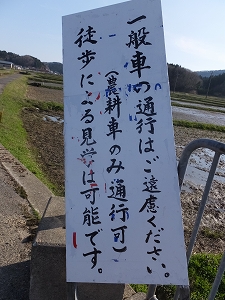 一般車の通行はご遠慮ください。
(農耕車のみ通行可)
徒歩による見学は可能です。